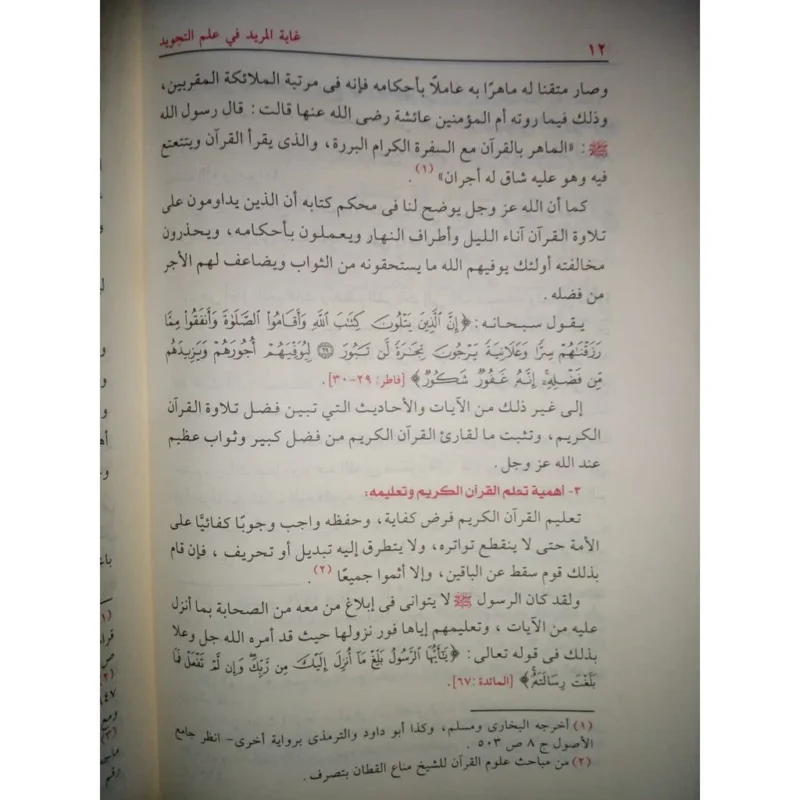 ١٢ غاية المريد في علم التجويد
وصار متقنا له ماهرًا به عاملًا بأحكامه فإنه فى مرتبة الملائكة المقربين،
وذلك فيما روته أم المؤمنين عائشة رضى الله عنها قالت: قال رسول الله
ﷺ: «الماهر بالقرآن مع السفرة الكرام البررة، والذى يقرأ القرآن ويتتعتع
فيه وهو عليه شاق له أجران» (١).
كما أن الله عز وجل يوضح لنا فى محكم كتابه أن الذين يداومون على
تلاوة القرآن آناء الليل وأطراف النهار ويعملون بأحكامه، ويحذرون
مخالفته أولئك يوفيهم الله ما يستحقونه من الثواب ويضاعف لهم الأجر
من فضله.
يقول سبحانه: ﴿إِنَّ ٱلَّذِينَ يَتْلُونَ كِتَٰبَ ٱللَّهِ وَأَقَامُوا۟ ٱلصَّلَوٰةَ وَأَنفَقُوا۟ مِمَّا
رَزَقْنَٰهُمْ سِرًّا وَعَلَانِيَةً يَرْجُونَ تِجَٰرَةً لَّن تَبُورَ ٢٩ لِيُوَفِّيَهُمْ أُجُورَهُمْ وَيَزِيدَهُم
مِّن فَضْلِهِۦٓ إِنَّهُۥ غَفُورٌ شَكُورٌ﴾ [فاطر: ٢٩-٣٠].
إلى غير ذلك من الآيات والأحاديث التي تبين فضل تلاوة القرآن
الكريم، وتثبت ما لقارئ القرآن الكريم من فضل كبير وثواب عظيم
عند الله عز وجل.
٣- أهمية تعلم القرآن الكريم وتعليمه:
تعليم القرآن الكريم فرض كفاية، وحفظه واجب وجوبًا كفائيًّا على
الأمة حتى لا ينقطع تواتره، ولا يتطرق إليه تبديل أو تحريف، فإن قام
بذلك قوم سقط عن الباقين، وإلا أثموا جميعًا (٢).
ولقد كان الرسول ﷺ لا يتوانى فى إبلاغ من معه من الصحابة بما أنزل
عليه من الآيات، وتعليمهم إياها فور نزولها حيث قد أمره الله جل وعلا
بذلك فى قوله تعالى: ﴿يَٰٓأَيُّهَا ٱلرَّسُولُ بَلِّغْ مَآ أُنزِلَ إِلَيْكَ مِن رَّبِّكَ وَإِن لَّمْ تَفْعَلْ فَمَا
بَلَّغْتَ رِسَالَتَهُۥ﴾ [المائدة: ٦٧].
(١) أخرجه البخارى ومسلم، وكذا أبو داود والترمذى برواية أخرى- انظر جامع
الأصول ج ٨ ص ٥٠٣.
(٢) من مباحث علوم القرآن للشيخ مناع القطان بتصرف.